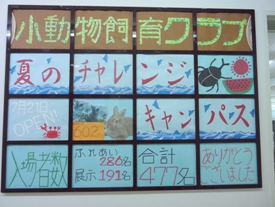 小動物飼育クラブ
夏のチャレンジ
7月21日
OPEN!
602
キャンパス
入場者数
ふれあい 286名
展示 191名
合計
477名
ありがとう
ございました